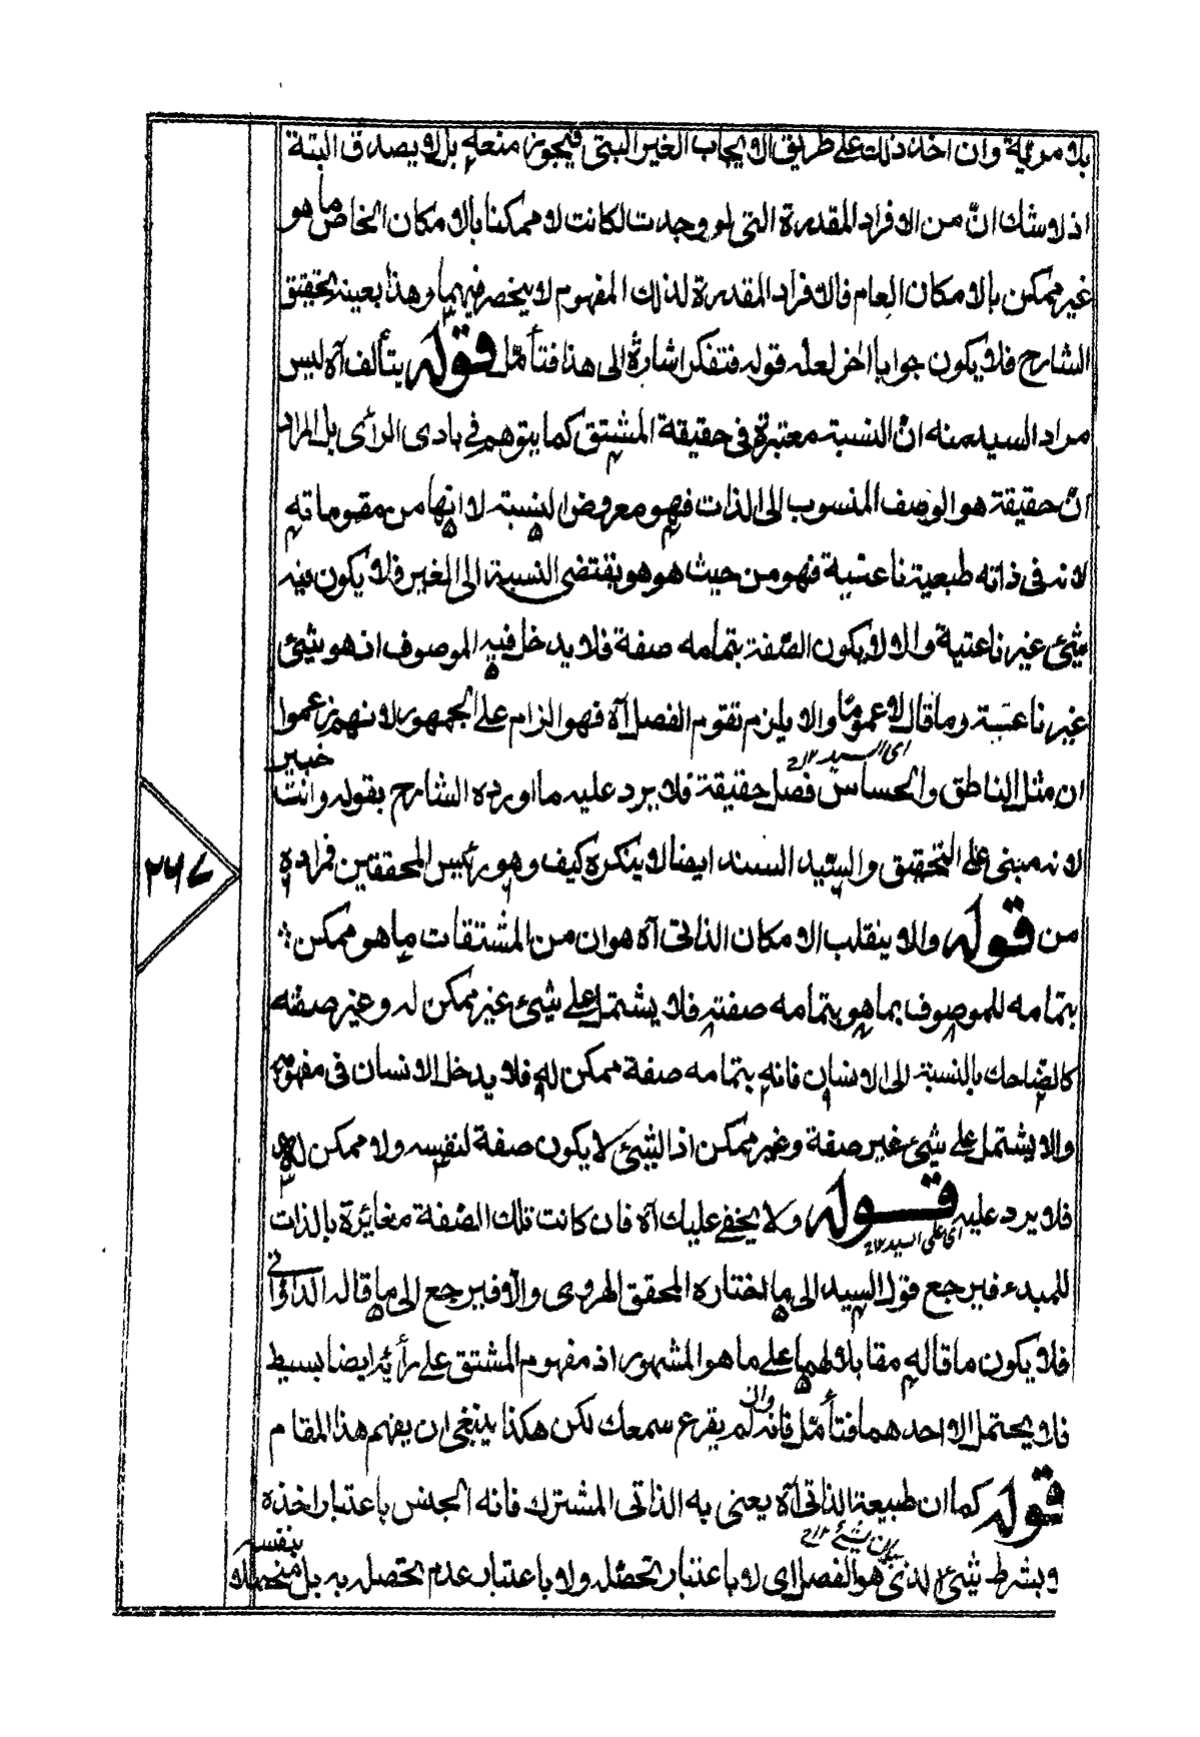 بلا مرية وان اخذ ذلك على طريق الايجاب الغير البتى فيجوز منعه بل لا يصدق البتة
اذ لا شك انّ من الافراد المقدرة التى لو وجدت لكانت لا ممكنا بالامكان الخاص ما هو
غير ممكن بالامكان العام فالافراد المقدرة لذلك المفهوم لا ينحصر فيهما وهذا بعينه تحقيق
الشارح فلا يكون جوابا اخر لعله قوله فتفكر اشارة الى هذا فتأمّل قوله يتألف آه ليس
مراد السيد منه انّ النسبة معتبرة فى حقيقة المشتق كما يتوهم فى بادى الرأى بل المراد
انّ حقيقة هو الوصف المنسوب الى الذات فهو معروض النسبة لا انها من مقوماته
لانه فى ذاته طبعية ناعتية فهو من حيث هو هو يقتضى النسبة الى الغير فلا يكون فيه
شيئ غير ناعتية والا لا يكون الصّفة بتمامه صفة فلا يدخل فيه الموصوف اذ هو شيئ
غير ناعتية وما قال لا عموما والا يلزم تقوم الفصل آه فهو الزام على الجمهور لانهم زعموا
اى السيد ١٢
ان مثل الناطق والحساس فصل حقيقة فلا يرد عليه ما اورده الشارح بقوله وانت خبير
لانه مبنى على التحقيق والسّيد السند ايضا لا ينكره كيف وهو رئيس المحققين فمراده
من قوله والا ينقلب الامكان الذاتى آه هو ان من المشتقات ما هو ممكن
بتمامه للموصوف بما هو بتمامه صفته فلا يشتمل على شيئ غير ممكن له وغير صفته
كالضاحك بالنسبة الى الانسان فانه بتمامه صفة ممكن له فلا يدخل الانسان فى مفهومه
والا يشتمل على شيئ غير صفة وغير ممكن اذ الشيئ لا يكون صفة لنفسه ولا ممكن لها
فلا يرد عليه قوله ولا يخفے عليك آه فان كانت تلك الصّفة مغائرة بالذات
اى على السيد ١٢
للمبدء فيرجع قول السيد الى ما اختاره المحقق الهروى والّا فيرجع الى ما قاله الدوانى
فلا يكون ما قاله مقابلا لهما على ما هو المشهور اذ مفهوم المشتق على رأيه ايضا بسيط
فلا يحتمل الا احدهما فتأمّل فانه وان لم يقرع سمعك لكن هكذا ينبغى ان يفهم هذا المقام
قوله كما ان طبيعة الذاتى آه يعنى به الذاتى المشترك فانه الجنس باعتبار اخذه
بيان شيئ ١٢
وبشرط شيئ الذى هو الفصل اى لا باعتبار تحصله ولا باعتبار عدم تحصله به بل بنفسه
٢٦٧